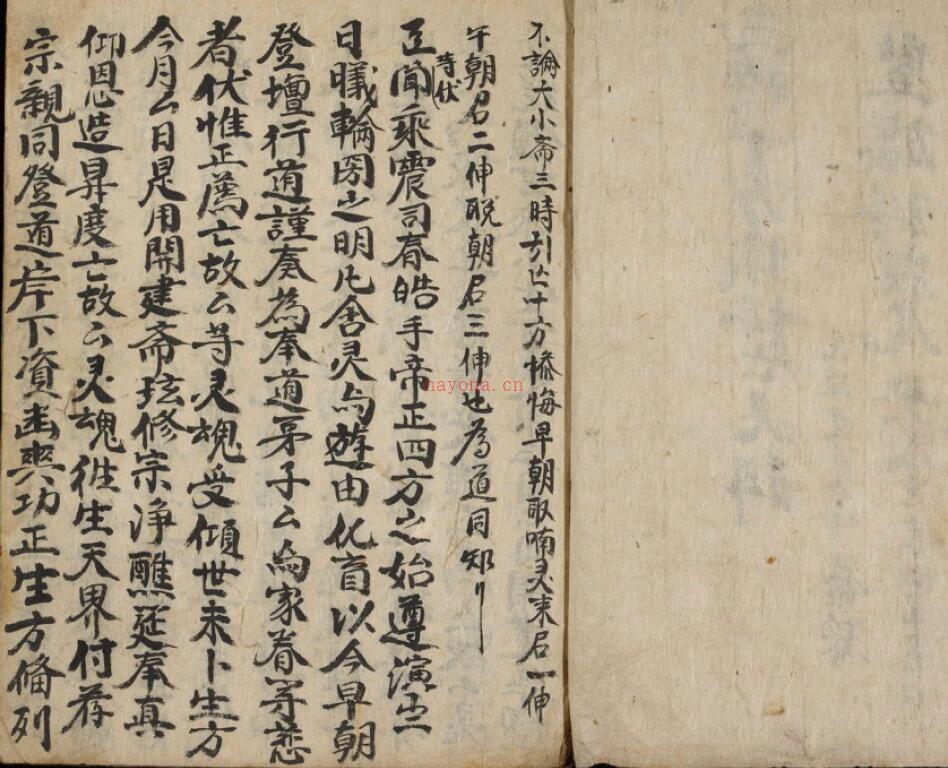 不論大小斋三時引亡十方懺悔早朝取喃灵末启一伸
午朝启二伸晚朝启三伸也为道同知
臣聞乘震司春皓手帝正四方之始遵演
時伏
日曦輪因之明凡舍灵与遊由化育以今早朝
登壇行道謹奏為奉道弟子厶为家眷等悲
者伏惟正薦亡故厶等灵魂受傾世未卜生方
今月厶日是用開建斋玹修宗净醮延奉真
仰恩造昇度亡故厶灵魂徃生天界付荐
宗親同登道岸下資幽爽功正生方俻列
nayona.cn